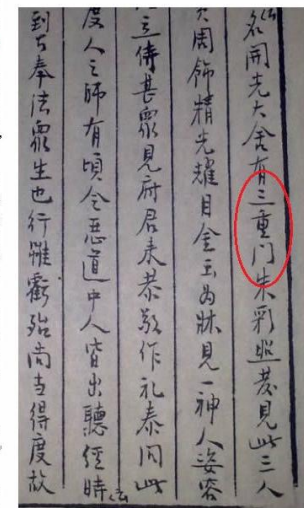 名開光大舍有三重门朱彩照發見此三人
周飾精光耀目金玉为牀見一神人姿容
立侍甚衆見府君来恭敬作礼泰问此
度人之師有頃令恶道中人皆出聽经時
到古奉法衆生也行雖虧殆尚当得度故